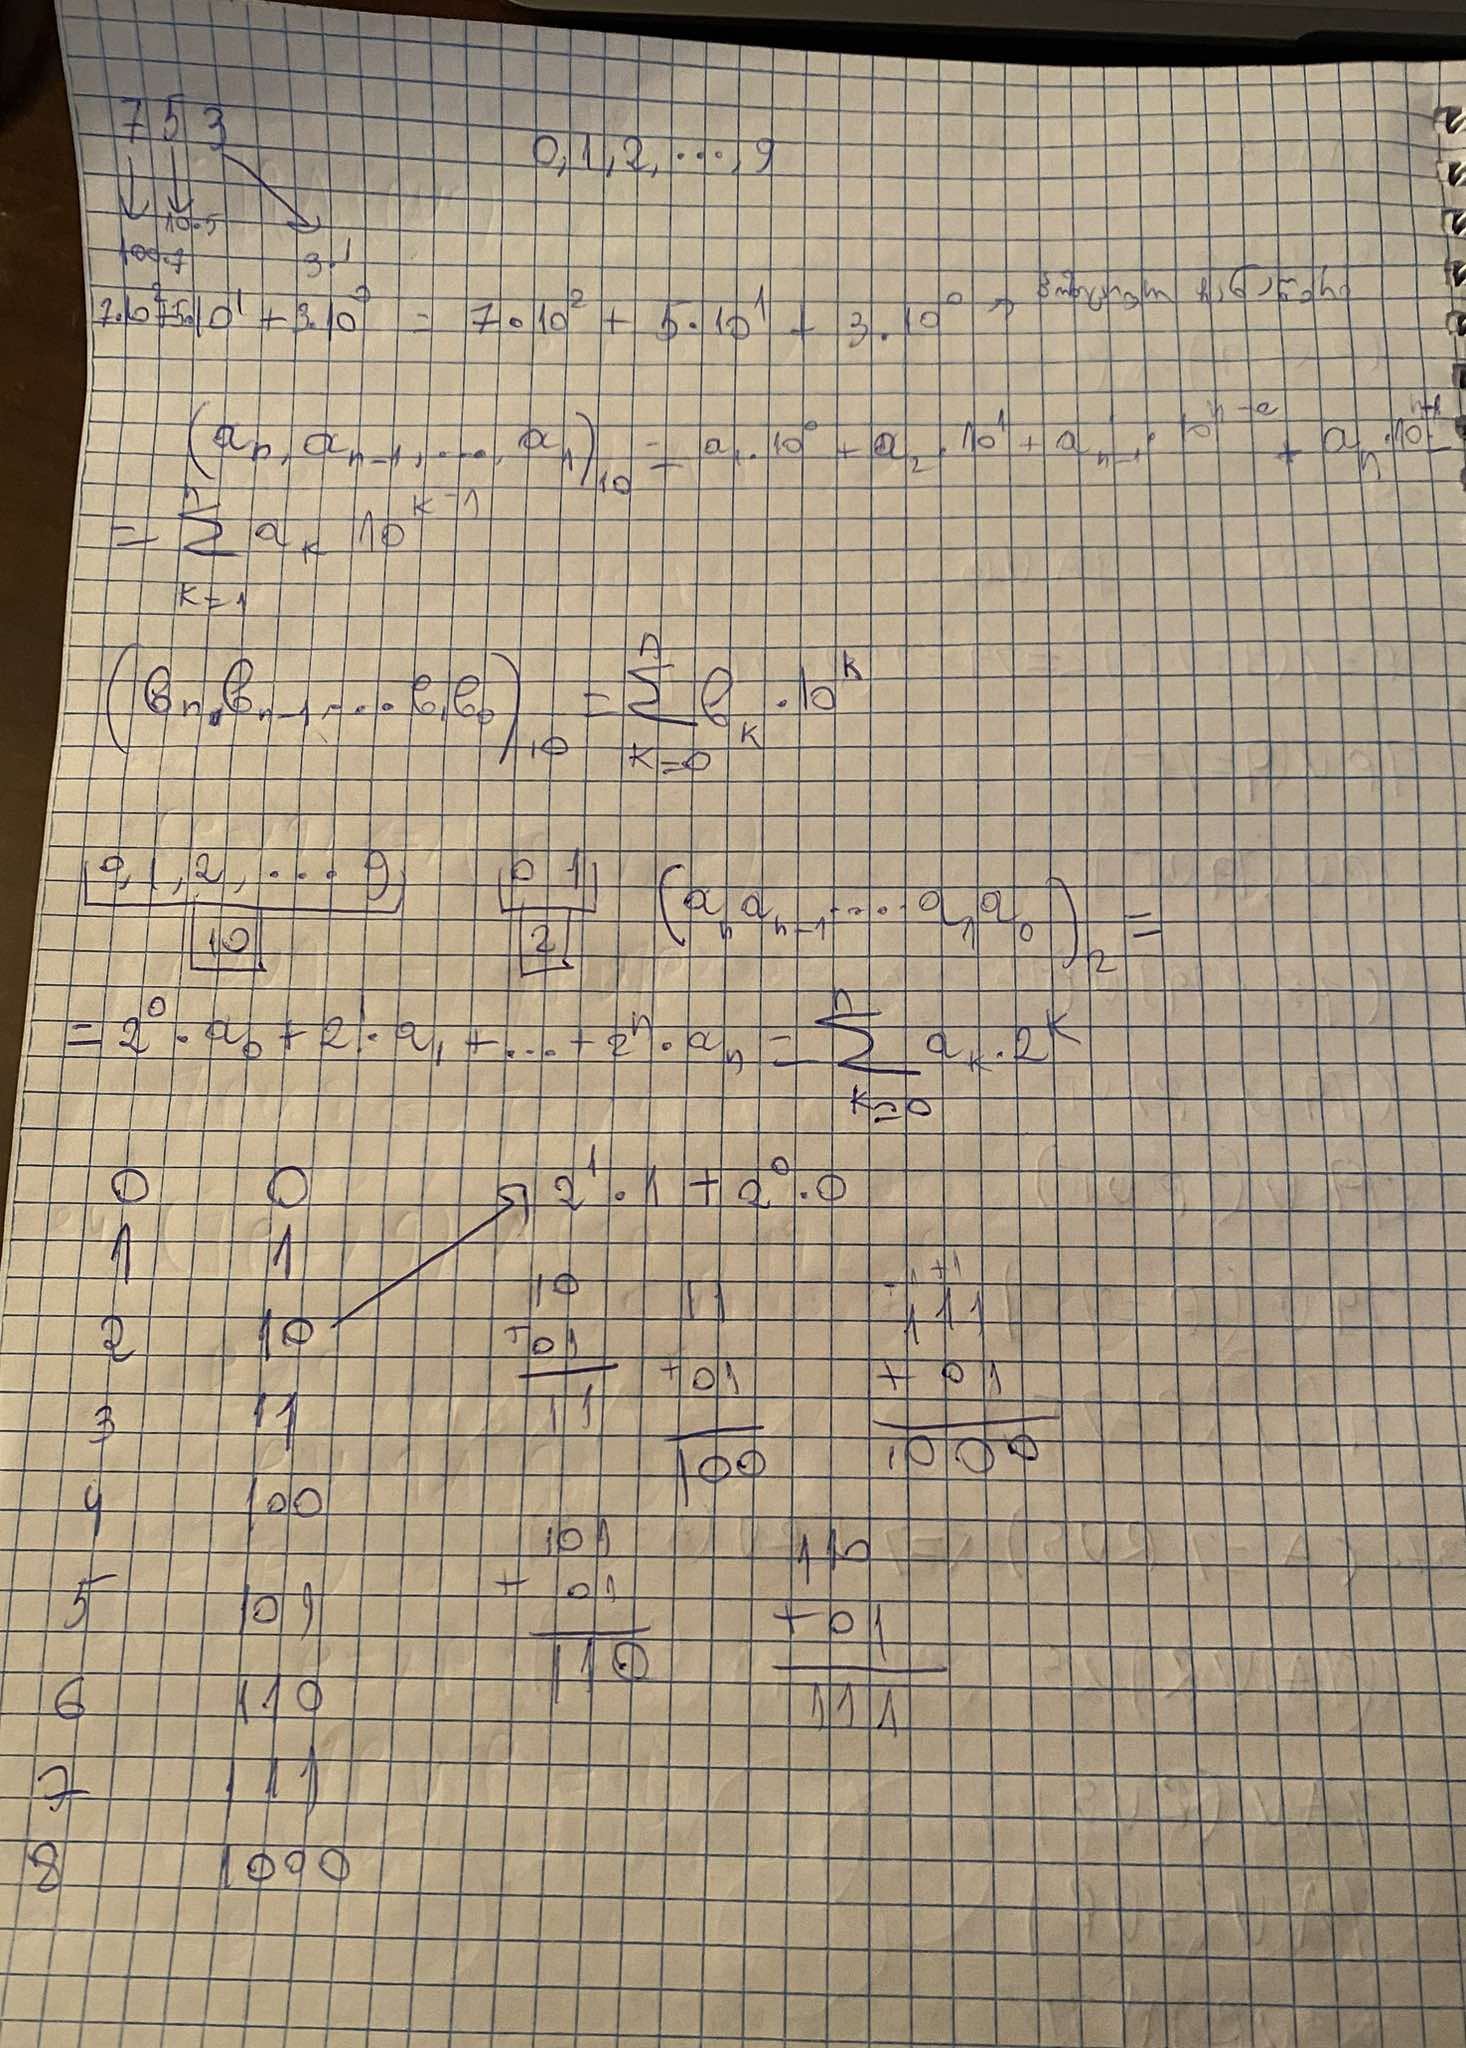 7 5 3
0, 1, 2, ..., 9
10·5
100·7
3·1
7·10² + 5·10¹ + 3·10⁰ = 7·10² + 5·10¹ + 3·10⁰
(aₙ, aₙ₋₁, ..., a₁)₁₀ = a₁·10⁰ + a₂·10¹ + aₙ₋₁·10ⁿ⁻² + aₙ·10ⁿ⁻¹
= ∑ₖ₌₁ⁿ aₖ 10ᵏ⁻¹
(вₙ, вₙ₋₁, ... в₁в₀)₁₀ = ∑ₖ₌₀ⁿ вₖ·10ᵏ
0, 1, 2, ... 9
0 1
(aₙaₙ₋₁....a₁a₀)₂ =
10
2
= 2⁰·a₀ + 2¹·a₁ + ... + 2ⁿ·aₙ = ∑ₖ₌₀ⁿ aₖ·2ᵏ
0 0
2¹·1 + 2⁰·0
1 1
2 10
3 11
4 100
5 101
6 110
7 111
8 1000
10
+01
11
11
+01
100
+1
111
+ 01
1000
101
+ 01
110
110
+01
111